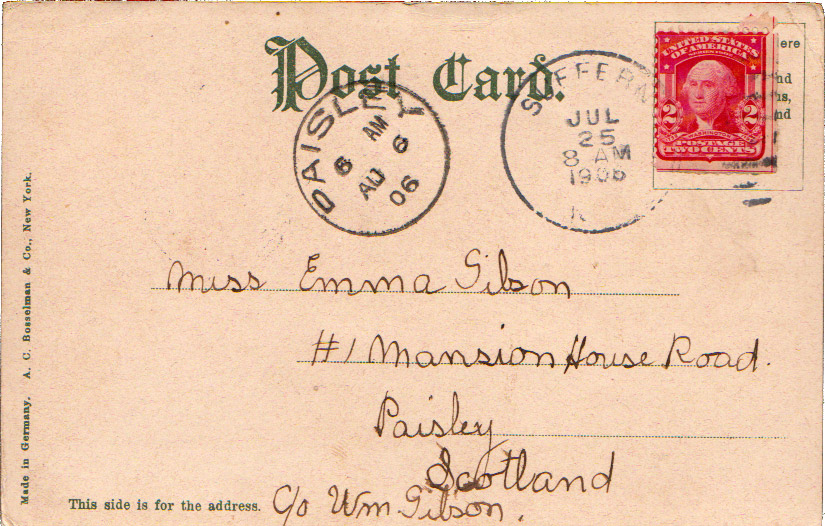 Post Card.
SUFFERN
JUL
25
8 AM
1906
PAISLEY
AM
6 6
AU
06
UNITED STATES
OF AMERICA
2 2
WASHINGTON
POSTAGE
TWO CENTS
ere
nd
us,
nd
Miss Emma Gibson
#1 Mansion House Road.
Paisley
Scotland
C/o Wm Gibson.
This side is for the address.
Made in Germany. A. C. Bosselman & Co., New York.